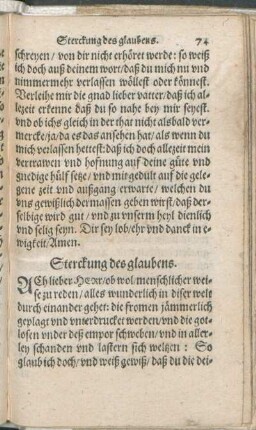 Sterckung des glaubens. 74
schreyen/ von dir nicht erhöret werde: so weiß
ich doch auß deinem wort/ daß du mich nu vnd
nimmermehr verlassen wöllest oder könnest.
Verleihe mir die gnad lieber vatter/ daß ich al-
lezeit erkenne daß du so nahe bey mir seyest.
vnd ob ichs gleich in der that nicht alsbald ver-
mercke/ ja/ da es das ansehen hat/ als wenn du
mich verlassen hettest: daß ich doch allezeit mein
vertrawen vnd hofnung auf deine güte vnd
gnedige hülf setze/ vnd mit gedult auf die gele-
gene zeit vnd außgang erwarte/ welchen du
uns gewißlich dermassen geben wirst/ daß der-
selbige wird gut/ vnd zu vnserm heyl dienlich
vnd selig seyn. Dir sey lob/ ehr vnd danck in e-
wigkeit/ Amen.
Sterckung des glaubens.
ACh lieber HErr/ ob wol/ menschlicher wei-
se zu reden/ alles wunderlich in diser welt
durch einander gehet: die fromen jämmerlich
geplagt vnd vnterdrucket werden/ vnd die got-
losen vnder deß empor schweben/ vnd in aller-
ley schanden vnd lastern sich weltzen: So
glaub ich doch/ vnd weiß gewiß/ daß du die dei-